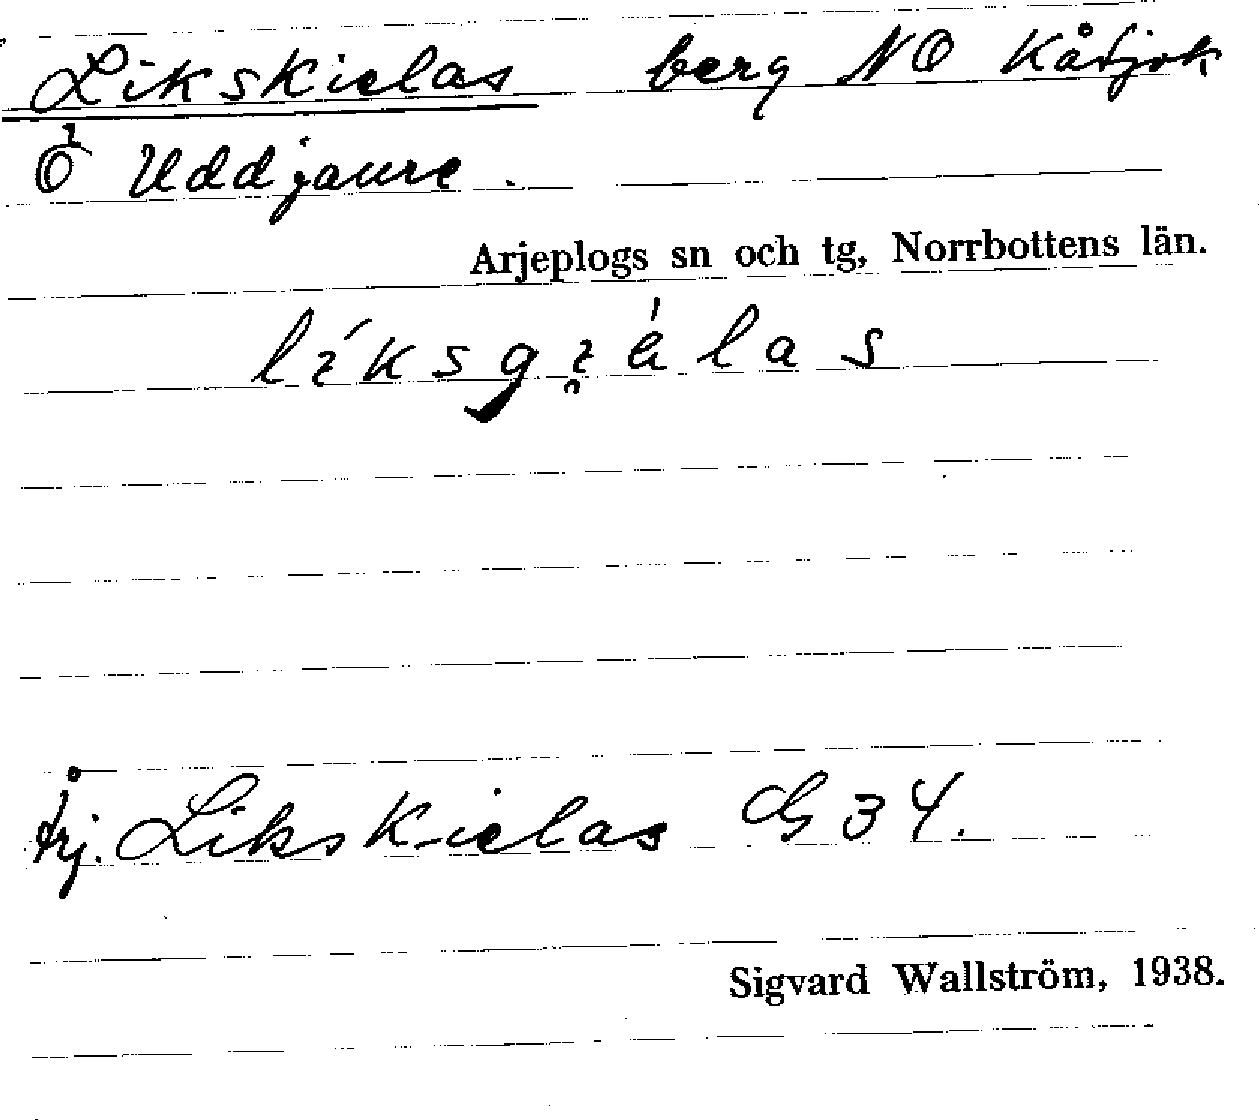 Likskielas berg NO Kåtjok
Ö Uddjaure.
Arjeplogs sn och tg, Norrbottens län.
Likskielas G 34.
Sigvard Wallström, 1938.